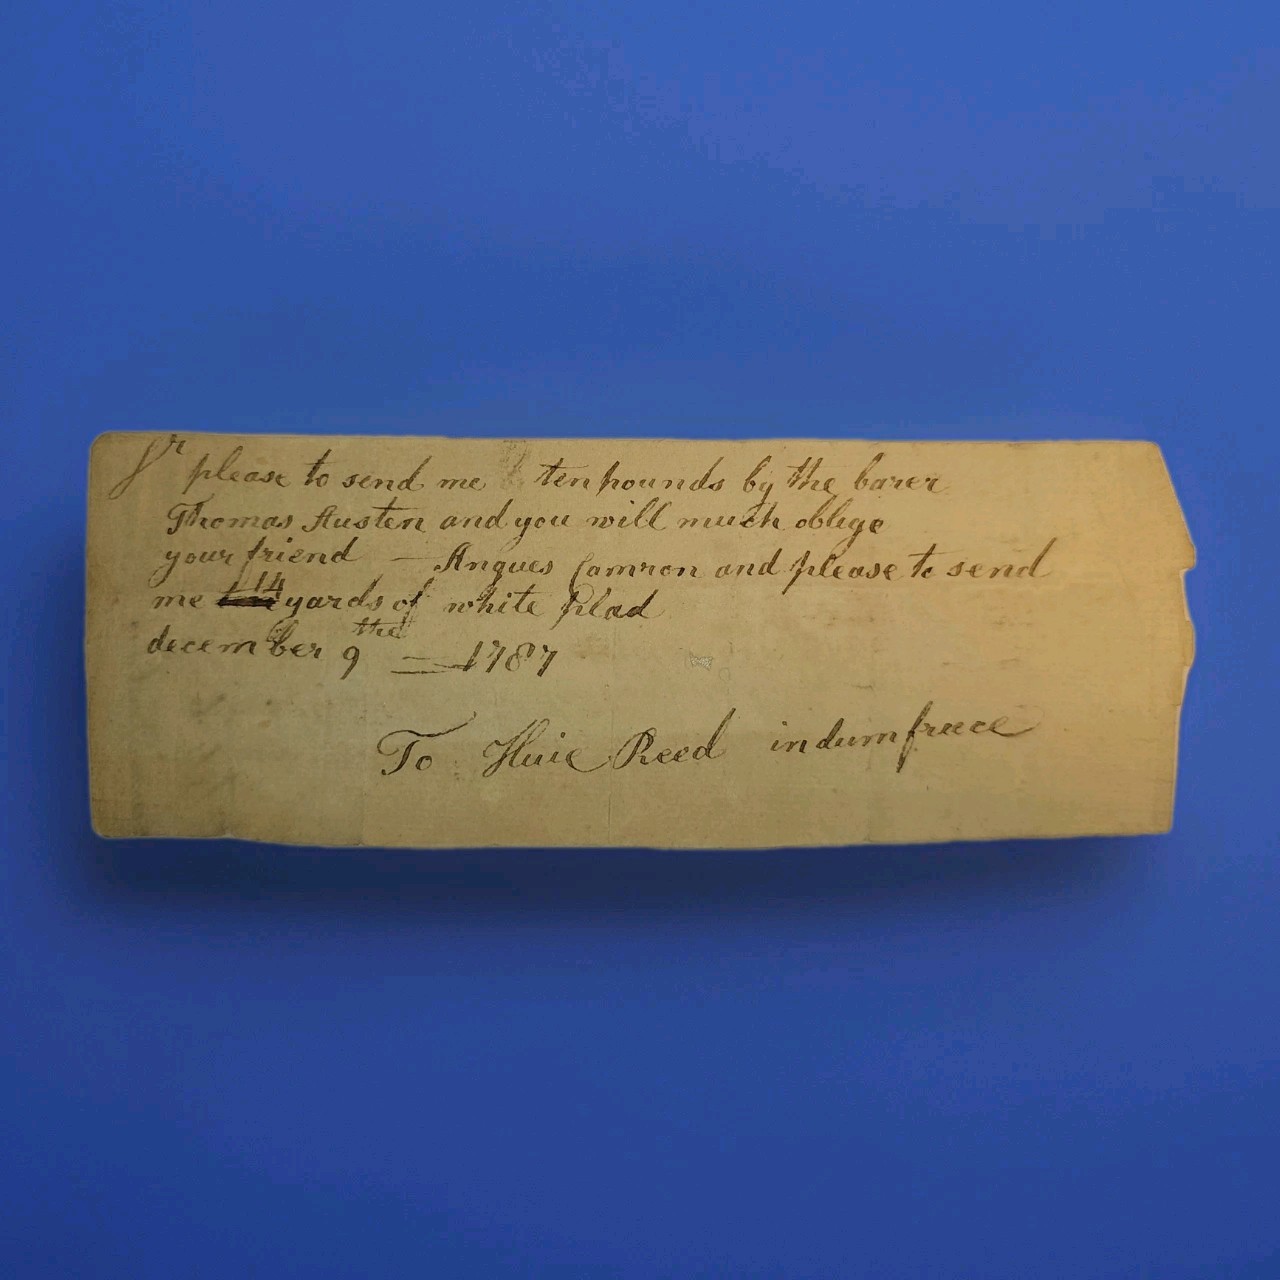 Sr please to send me ten pounds by the barer
Thomas Austen and you will much oblige
your friend — Angues Camron and please to send
me 14 yards of white plad
december 9 the = 1787
To Huie Reed in dumfreece